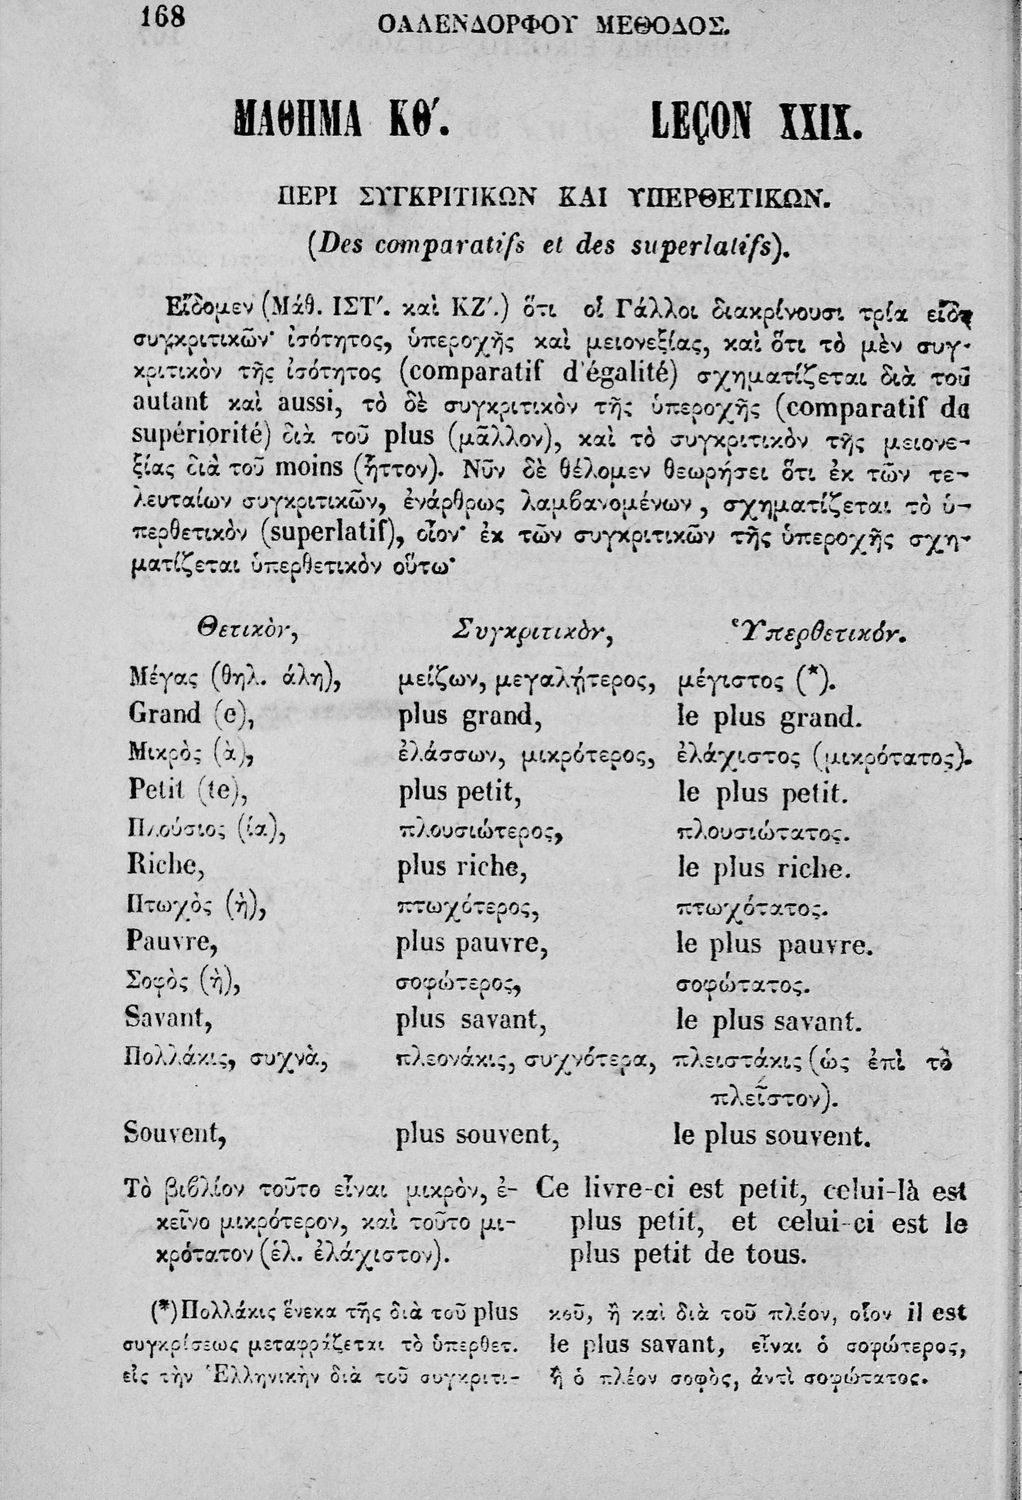 168 ΟΛΛΕΝΔΟΡΦΟΥ ΜΕΘΟΔΟΣ.
ΜΑΘΗΜΑ ΚΘ΄. LEÇON XXIX.
ΠΕΡΙ ΣΥΓΚΡΙΤΙΚΩΝ ΚΑΙ ΥΠΕΡΘΕΤΙΚΩΝ.
(Des comparatifs et des superlatifs).
Εἴδομεν (Μάθ. ΙΣΤ΄. καὶ ΚΖ΄.) ὅτι οἱ Γάλλοι διακρίνουσι τρία εἴδη
συγκριτικῶν· ἰσότητος, ὑπεροχῆς καὶ μειονεξίας, καὶ ὅτι τὸ μὲν συγ-
κριτικὸν τῆς ἰσότητος (comparatif d'égalité) σχηματίζεται διὰ τοῦ
autant καὶ aussi, τὸ δὲ συγκριτικὸν τῆς ὑπεροχῆς (comparatif de
supériorité) διὰ τοῦ plus (μᾶλλον), καὶ τὸ συγκριτικὸν τῆς μειονε-
ξίας διὰ τοῦ moins (ἧττον). Νῦν δὲ θέλομεν θεωρήσει ὅτι ἐκ τῶν τε-
λευταίων συγκριτικῶν, ἐνάρθρως λαμβανομένων, σχηματίζεται τὸ ὑ-
περθετικὸν (superlatif), οἷον· ἐκ τῶν συγκριτικῶν τῆς ὑπεροχῆς σχη-
ματίζεται ὑπερθετικὸν οὕτω·
Θετικὸν, Συγκριτικὸν, Ὑπερθετικόν.
Μέγας (θηλ. άλη), μείζων, μεγαλήτερος, μέγιστος (*).
Grand (e), plus grand, le plus grand.
Μικρὸς (ὰ), ἐλάσσων, μικρότερος, ἐλάχιστος (μικρότατος).
Petit (te), plus petit, le plus petit.
Πλούσιος (ία), πλουσιώτερος, πλουσιώτατος.
Riche, plus riche, le plus riche.
Πτωχὸς (ὴ), πτωχότερος, πτωχότατος.
Pauvre, plus pauvre, le plus pauvre.
Σοφὸς (ὴ), σοφώτερος, σοφώτατος.
Savant, plus savant, le plus savant.
Πολλάκις, συχνὰ, πλεονάκις, συχνότερα, πλειστάκις (ὡς ἐπὶ τὸ
πλεῖστον).
Souvent, plus souvent, le plus souvent.
Τὸ βιβλίον τοῦτο εἶναι μικρὸν, ἐ-
κεῖνο μικρότερον, καὶ τοῦτο μι-
κρότατον (ἑλ. ἐλάχιστον).
Ce livre-ci est petit, celui-là est
plus petit, et celui-ci est le
plus petit de tous.
(*) Πολλάκις ἕνεκα τῆς διὰ τοῦ plus
συγκρίσεως μεταφράζεται τὸ ὑπερθετ.
εἰς τὴν Ἑλληνικὴν διὰ τοῦ συγκριτι-
κοῦ, ἢ καὶ διὰ τοῦ πλέον, οἷον il est
le plus savant, εἶναι ὁ σοφώτερος,
ἢ ὁ πλέον σοφὸς, ἀντὶ σοφώτατος.